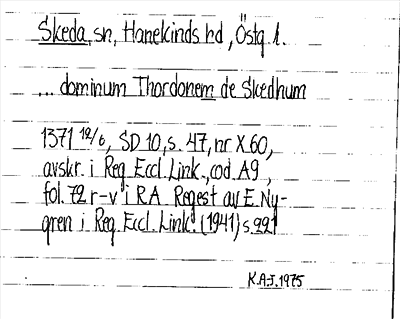 Skeda, sn, Hanekinds hd, Östg l.
... dominum Thordonem de Skedhum
1371 12/6, SD 10, s. 47, nr X.60,
avskr. i Reg. Eccl. Link., cod. A9,
fol. 72 r-v i RA. Regest av E. Ny-
gren i Reg. Eccl. Link. (1941) s. 221
K.A.J. 1975